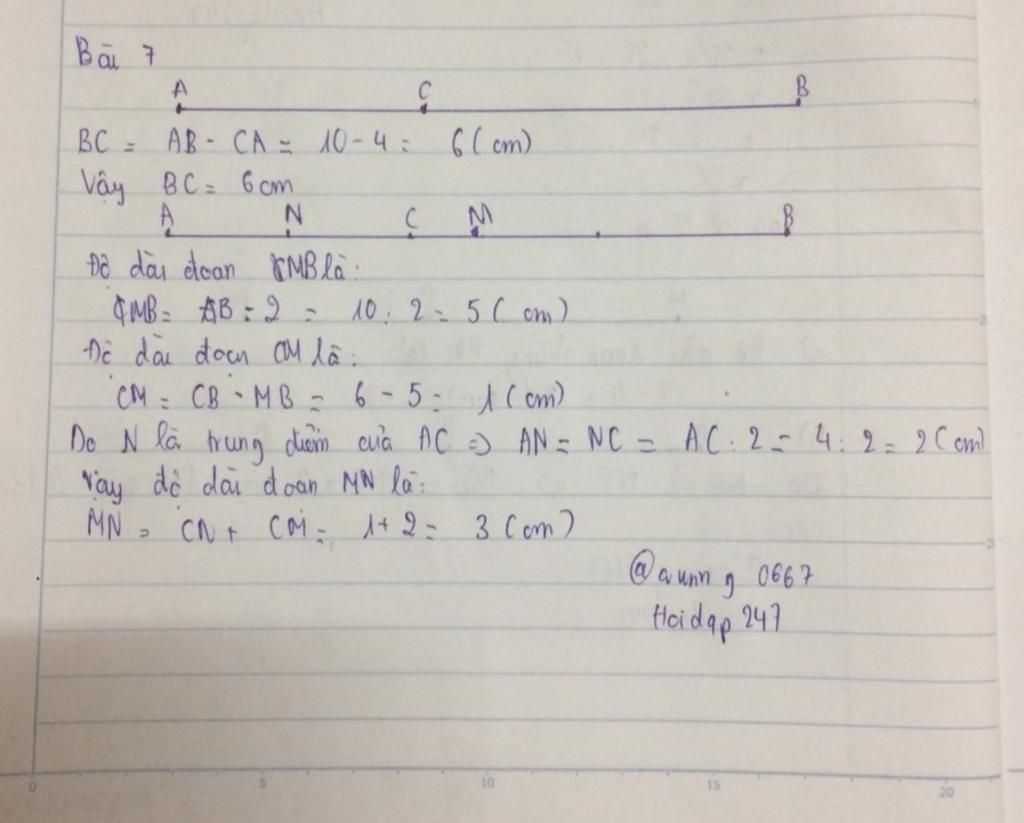 Bài 7
A C B
BC = AB - CA = 10 - 4 = 6 (cm)
Vậy BC = 6cm
A N C M B
Độ dài đoạn MB là:
MB = AB : 2 = 10 : 2 = 5 (cm)
Độ dài đoạn CM là:
CM = CB - MB = 6 - 5 = 1 (cm)
Do N là trung điểm của AC => AN = NC = AC : 2 = 4 : 2 = 2 (cm)
Vậy độ dài đoạn MN là:
MN = CN + CM = 1 + 2 = 3 (cm)
@aunng 0667
Hoidap 247
0 5 10 15 20